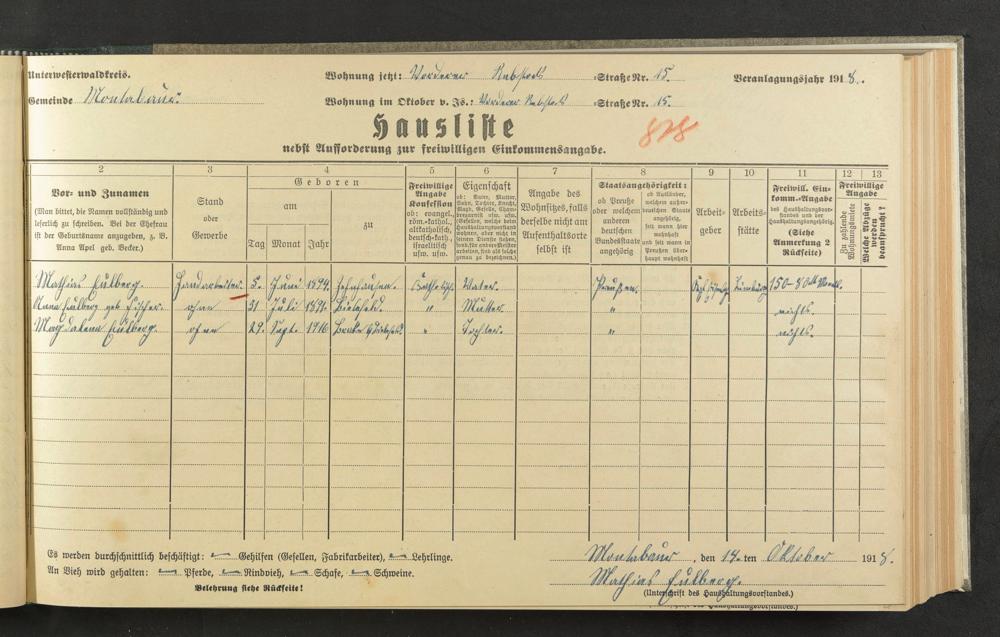 Unterwesterwaldkreis.
Wohnung jetzt: Vorderer Rebstock Straße Nr. 15.
Veranlagungsjahr 1918.
Gemeinde Montabaur.
Wohnung im Oktober v. Js.: Vorderer Rebstock Straße Nr. 15.
Hausliste
828
nebst Aufforderung zur freiwilligen Einkommensangabe.
2 3 4 5 6 7 8 9 10 11 12 13
Vor- und Zunamen
(Man bittet, die Namen vollständig und
leserlich zu schreiben. Bei der Ehefrau
ist der Geburtsname anzugeben, z. B.
Anna Apel geb. Becker.)
Stand
oder
Gewerbe
Geboren
am
zu
Tag Monat Jahr
Freiwillige
Angabe
Konfession
ob: evangel.,
röm.-kathol.,
altkatholisch,
deutsch-kath.,
israelitisch
usw. usw.
Eigenschaft
ob: Vater, Mutter,
Sohn, Tochter, Knecht,
Magd, Geselle, Cham-
bregarnist usw. usw.
Angabe des
Wohnsitzes, falls
derselbe nicht am
Aufenthaltsorte
selbst ist
Staatsangehörigkeit:
ob Preuße
oder welchem
anderen
deutschen
Bundesstaate
angehörig
ob Ausländer,
welchem außer-
deutschen Staate
angehörig,
seit wann hier
wohnhaft
und seit wann in
Preußen über-
haupt wohnhaft
Arbeit-
geber
Arbeits-
stätte
Freiwill. Ein-
komm.-Angabe
des Haushaltungsvor-
standes und der
Haushaltungsangehörig.
(Siehe
Anmerkung 2
Rückseite)
Freiwillige
Angabe
Zu zahlende
Wohnungsmiete
Welche Abzüge
werden
beansprucht?
Mathias Eulberg. Handarbeiter. 5. Juni 1894. Katholisch. Vater. Preußen. Limburg
Anna Eulberg geb. Fischer. ohne 31 Juli 1891. Bielefeld. " Mutter. " nichts.
Magdalena Eulberg. ohne 29. Sept. 1916 " Tochter. " nichts.
Es werden durchschnittlich beschäftigt: — Gehilfen (Gesellen, Fabrikarbeiter), — Lehrlinge.
An Vieh wird gehalten: — Pferde, — Rindvieh, — Schafe, — Schweine.
Belehrung siehe Rückseite!
Montabaur, den 14.ten Oktober 1918.
Mathias Eulberg.
(Unterschrift des Haushaltungsvorstandes.)